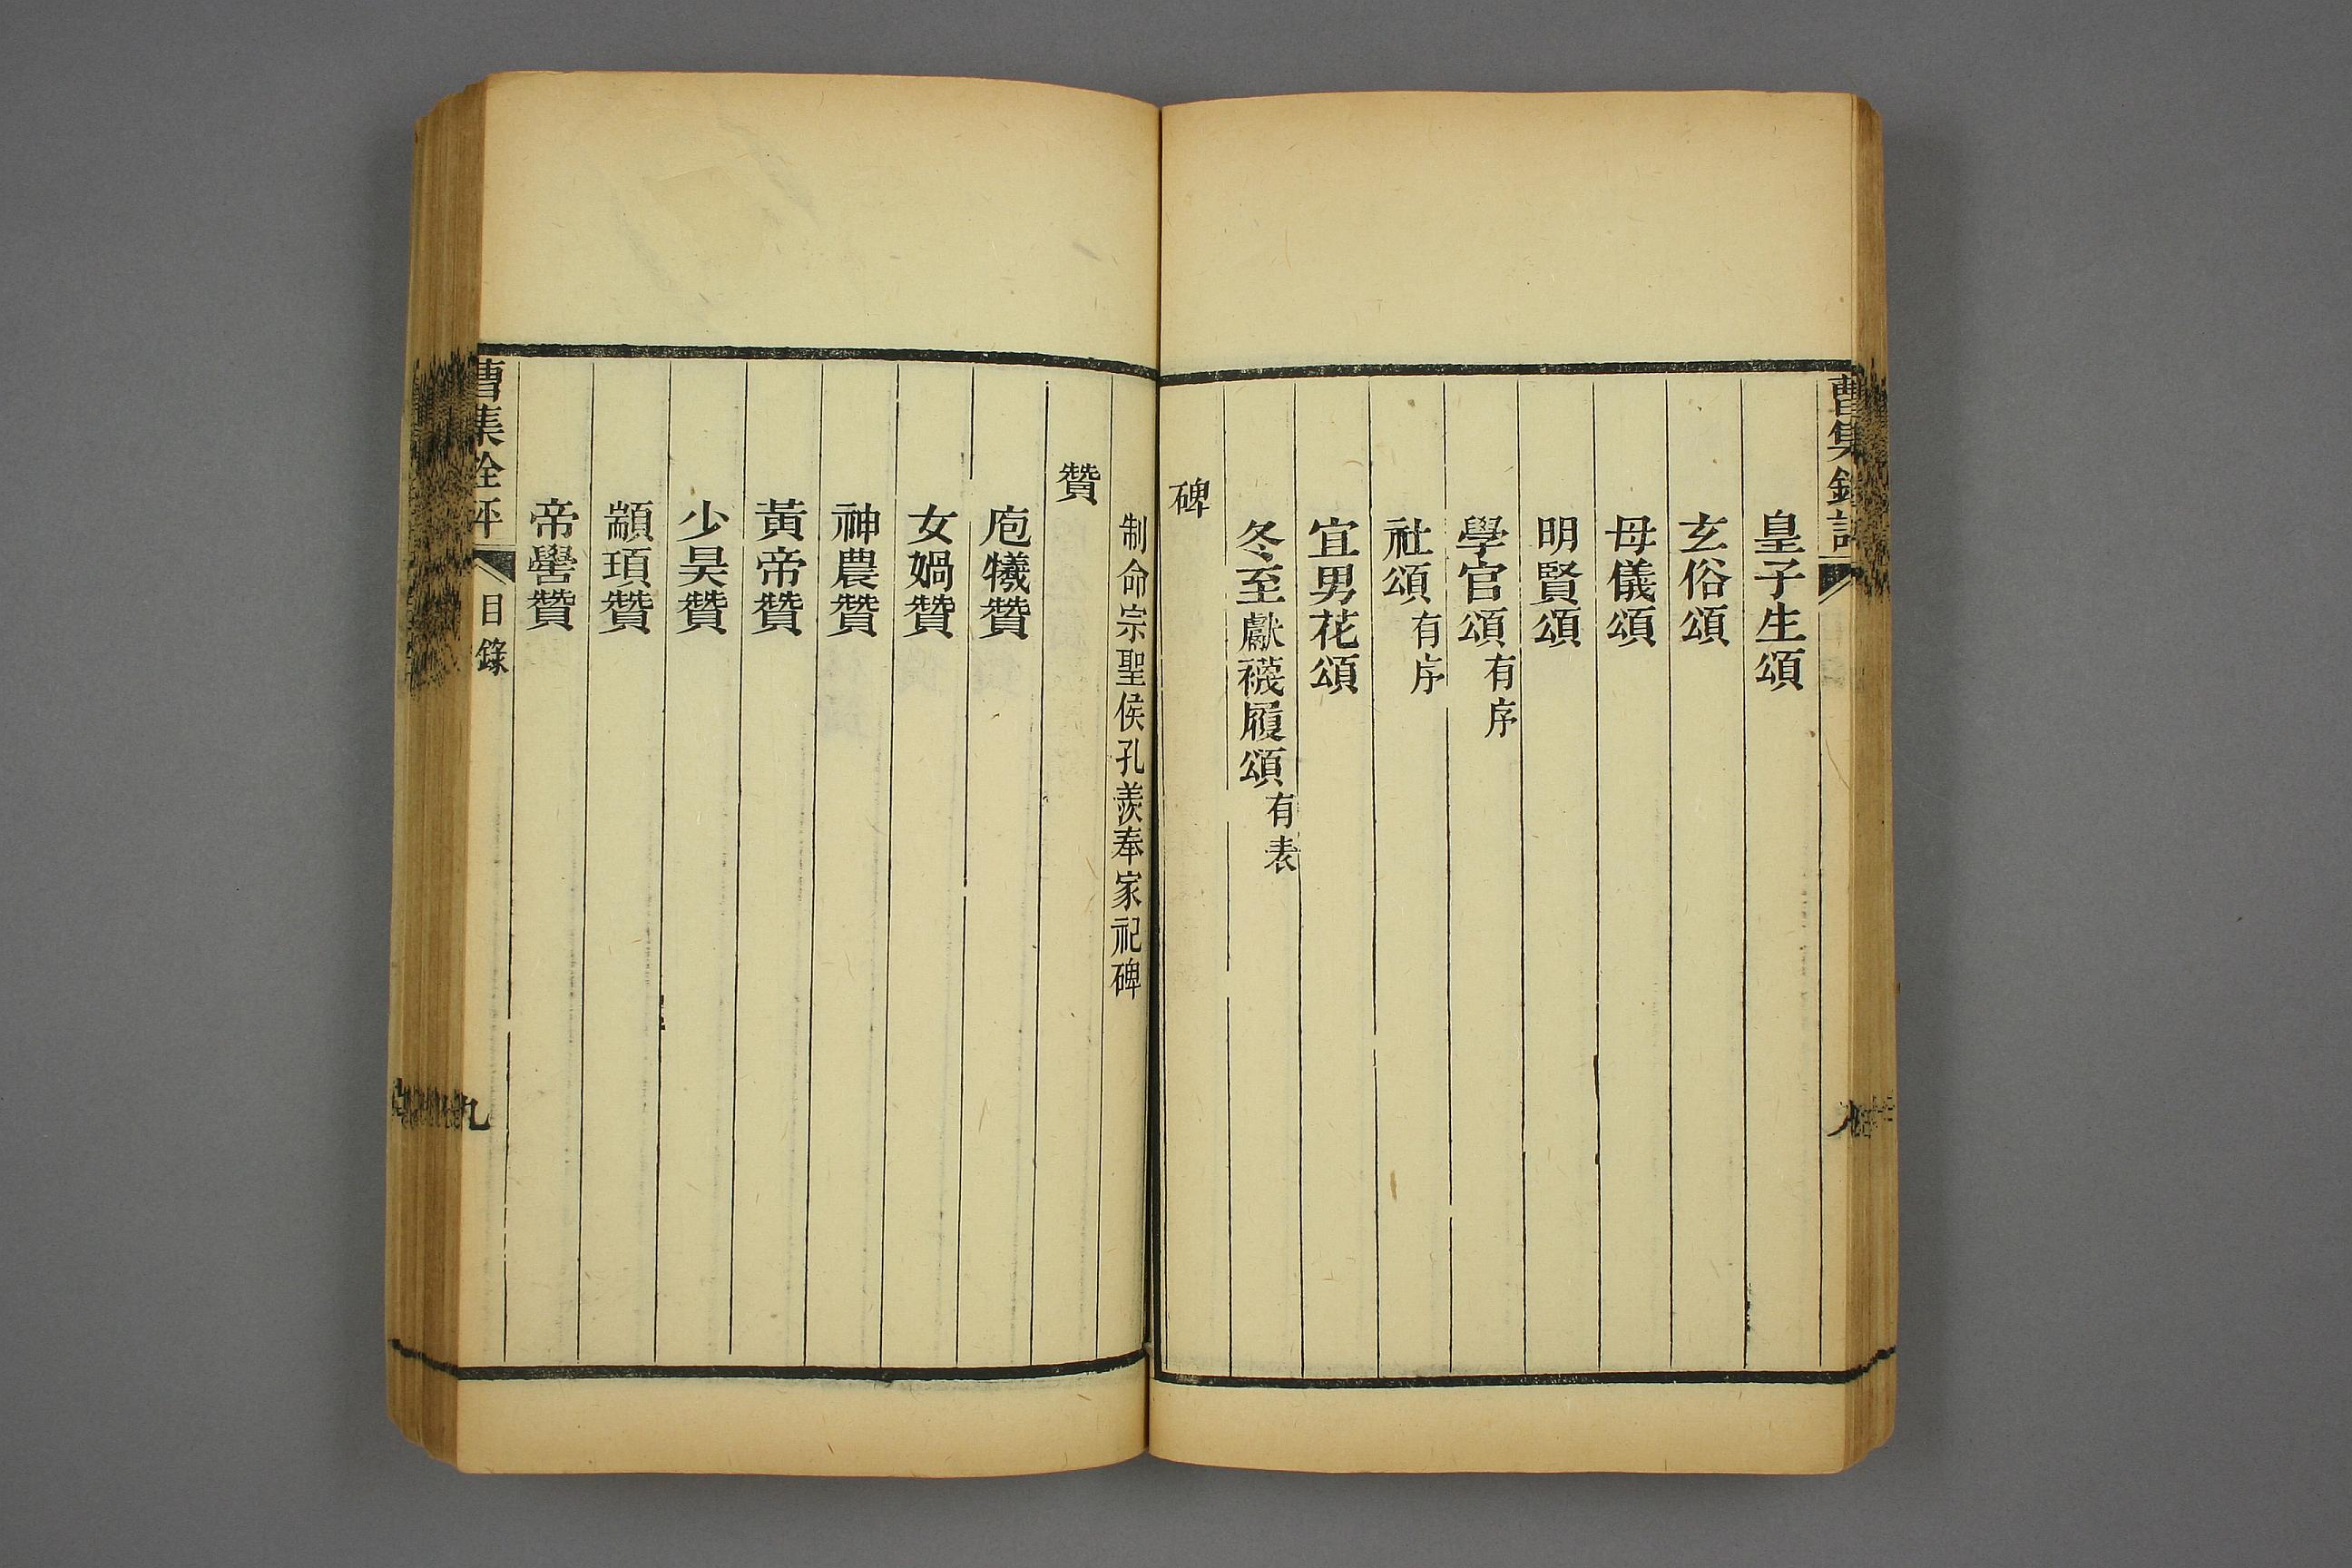 曹集銓評
皇子生頌
玄俗頌
母儀頌
明賢頌
學官頌有序
社頌有序
宜男花頌
冬至獻襪履頌有表
碑
制命宗聖侯孔羨奉家祀碑
贊
庖犧贊
女媧贊
神農贊
黃帝贊
少昊贊
顓頊贊
帝嚳贊
曹集銓評
目錄
九